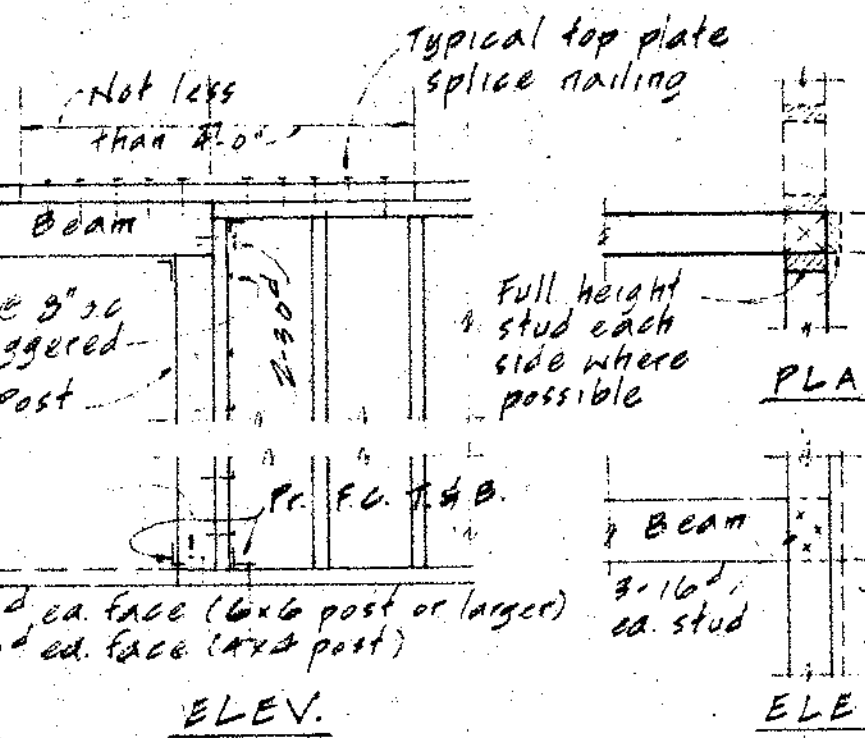 Typical top plate
splice nailing
Not less
than 4'-0"
Beam
@ 8" oc
Post
2-30d
Full height
stud each
side where
possible
PLA
Pr. F.C. T. & B.
Beam
3-16d
ea. stud
d ea. face (6x6 post or larger)
d ea. face (4x4 post)
ELEV.
ELE